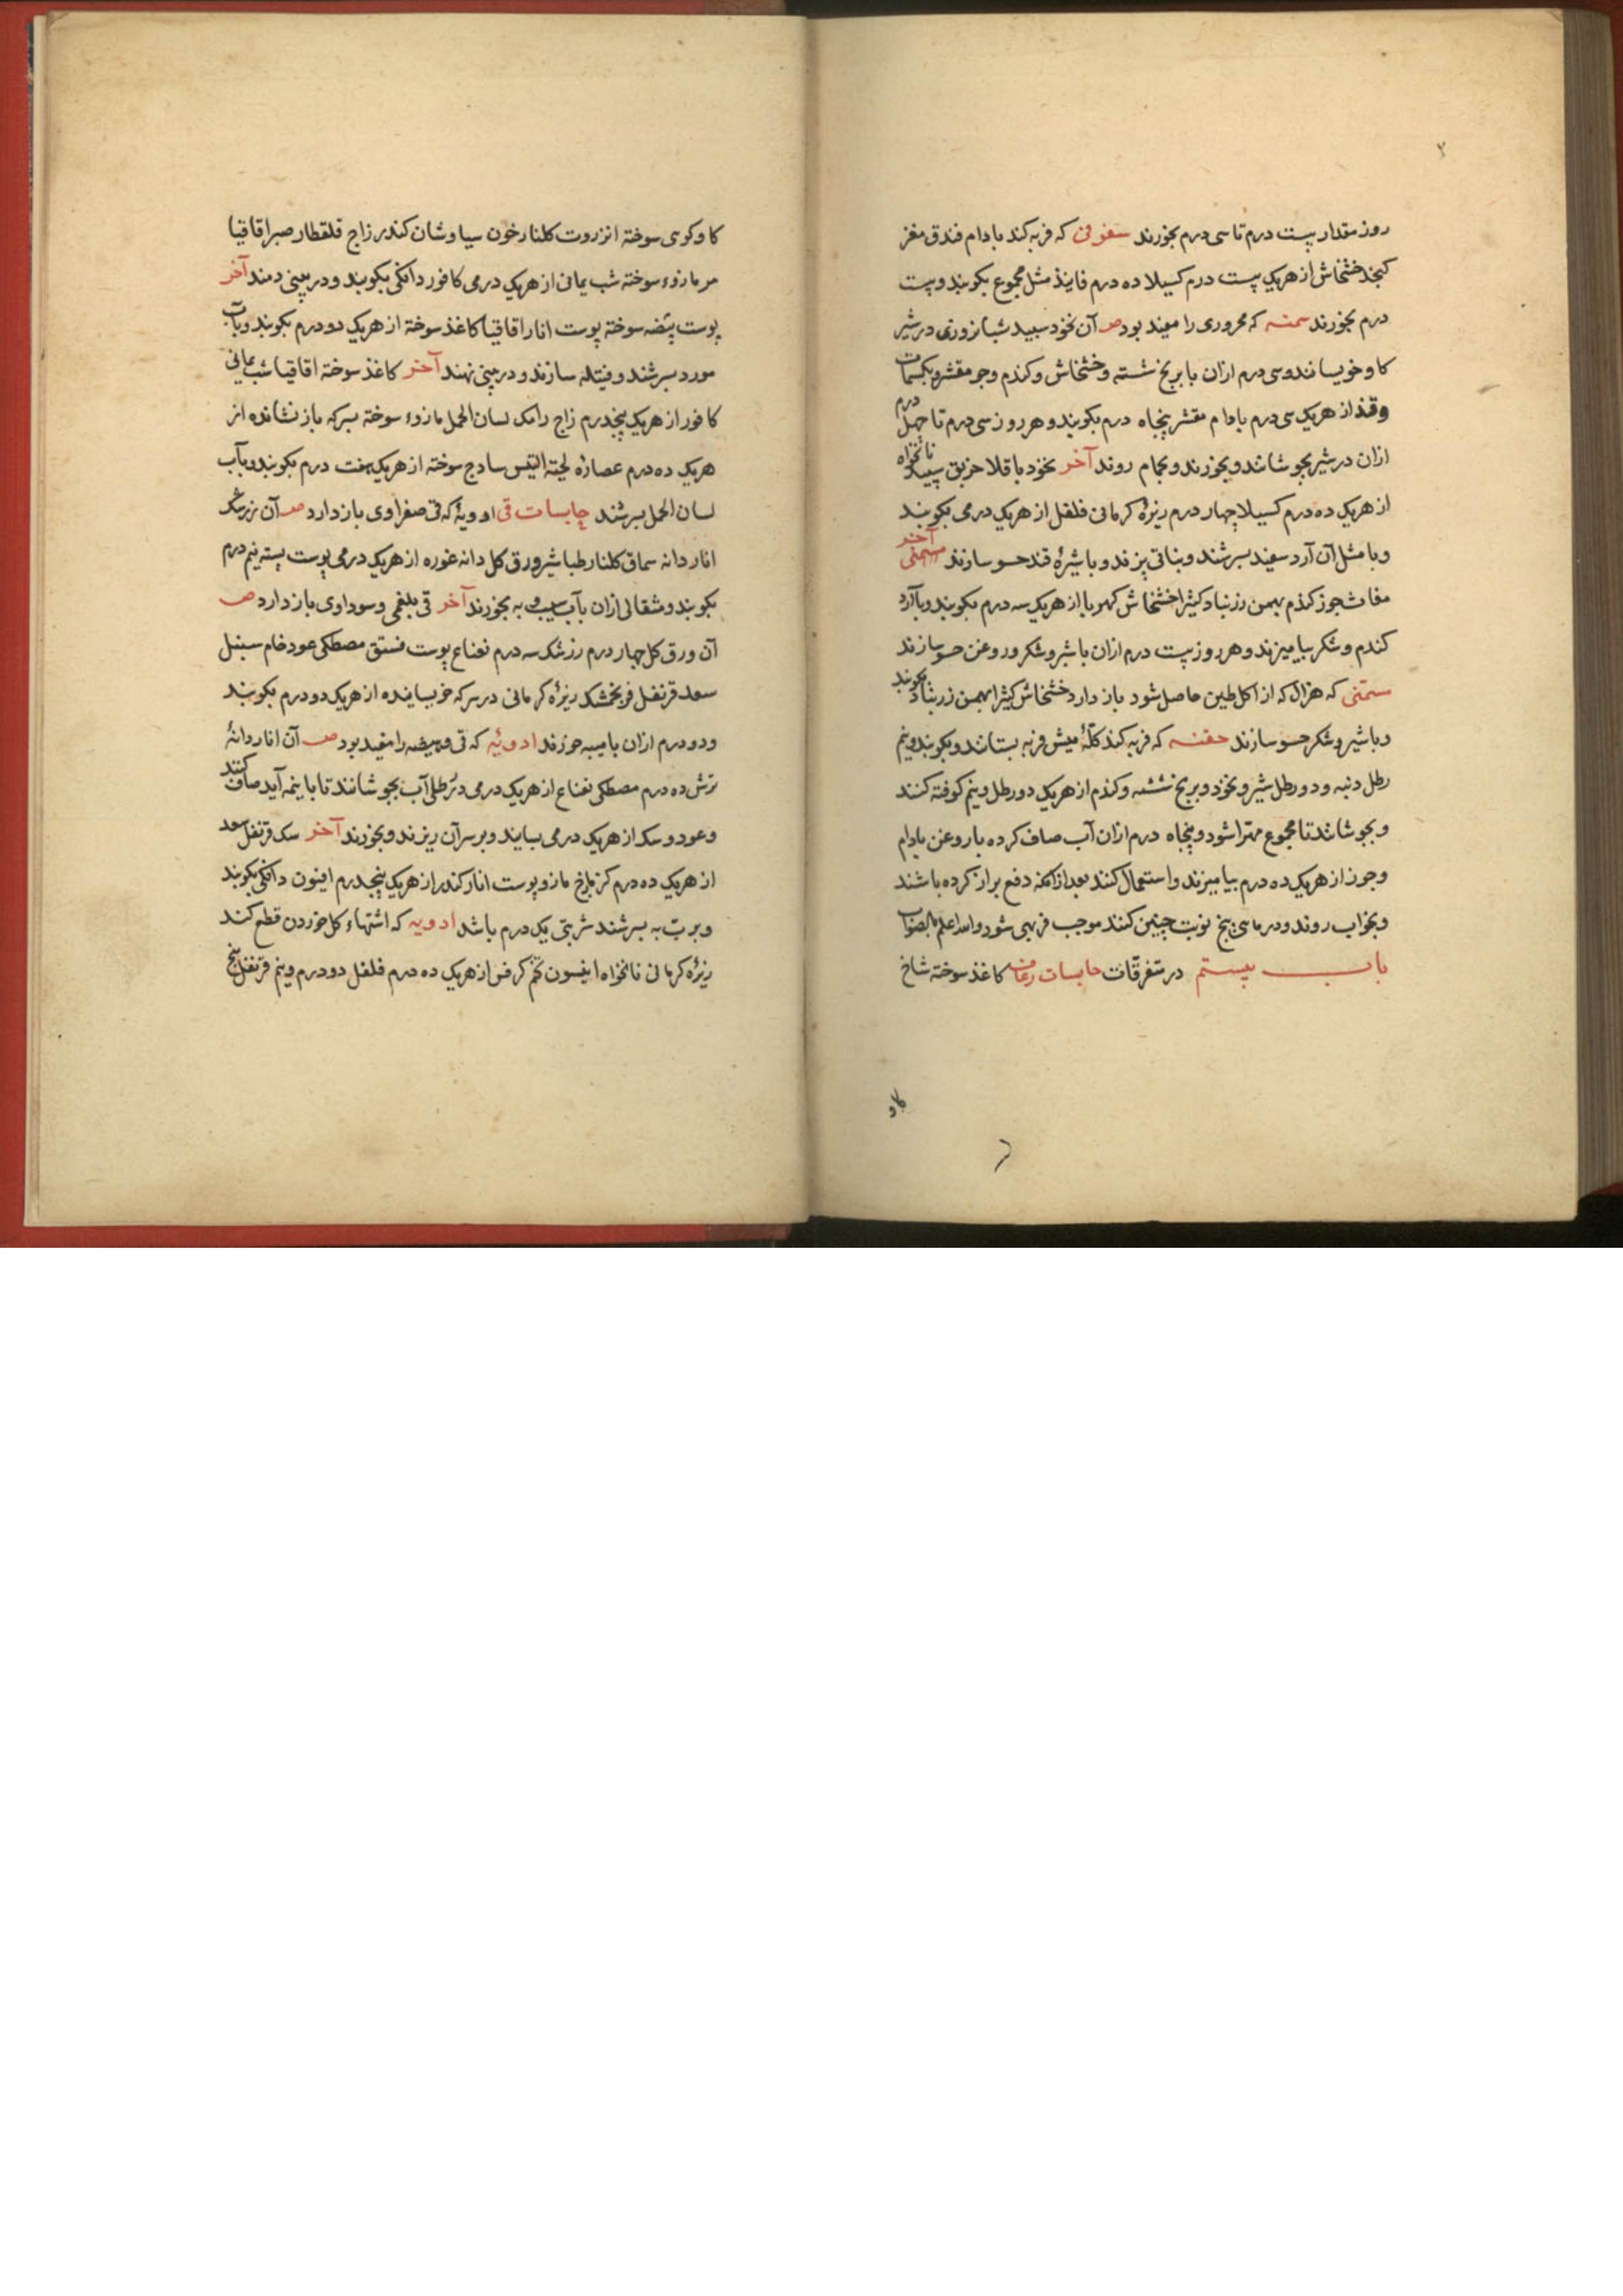 روز مقدار بیست درم تا سی درم بخورند سفوفی که فربه کند بادام فندق مغز
کنجد خشخاش از هریک بیست درم کسیلا ده درم فانیذ مثل مجموع بکوبند و بیست
درم بخورند سمنه که محروری را مفید بود صـ آن نخود سپید شبانروزی در شیر
کاو خویسانند و سی درم ازان با برنج شسته و خشخاش و کندم و جو مقشر و بکسمات
وقند از هریک سی درم بادام مقشر پنجاه درم بکوبند و هر روز سی درم تا چهل درم
ازان در شیر بجوشانند و بخورند و بحمام روند آخر نخود باقلا خربق سپید نانخواه
از هریک ده درم کسیلا چهار درم زیرهٔ کرمانی فلفل از هریک درمی بکوبند
و با مثل آن آرد سفید بسرشند و بناتی پزند و با شیرهٔ قند حسو سازند آخر مسمنی
مغاث جوز کندم بهمن زرنباد کثیرا خشخاش کهربا از هریک سه درم بکوبند و با آرد
کندم و شکر بیامیزند و هر روز بیست درم ازان با شیر و شکر و روغن حسو سازند
سمنی که هزال که از اکل طین حاصل شود باز دارد خشخاش کثیرا بهمن زرنباد بکوبند
و با شیر و شکر حسو سازند حقنه که فربه کند کلهٔ میش فربه بستانند و بکوبند و نیم
رطل دنبه و دو رطل شیر و نخود و برنج شسته و کندم از هریک دو رطل و نیم کوفته کنند
و بجوشانند تا مجموع مهرا شود و پنجاه درم ازان آب صاف کرده با روغن بادام
و جوز از هریک ده درم بیامیزند و استعمال کنند بعد از انکه دفع براز کرده باشند
و بخواب روند و در ماهی پنج نوبت چنین کنند موجب فربهی شود والله اعلم بالصواب
باب بیستم در متفرقات حابسات رعاف کاغذ سوخته شاخ
کاو
کاو کوی سوخته انزروت کلنار خون سیاوشان کندر زاج قلقطار صبر اقاقیا
مر مازوء سوخته شب یمانی از هریک درمی کافور دانکی بکوبند و در بینی دمند آخر
پوست بیضه سوخته پوست انار اقاقیا کاغذ سوخته از هریک دو درم بکوبند و بآب
مورد بسرشند و فتیله سازند و در بینی نهند آخر کاغذ سوخته اقاقیا شب یمانی
کافور از هریک پنجدرم زاج رامک لسان الحمل مازوء سوخته بسرکه باز نشانده از
هریک ده درم عصارهٔ لحیة التیس سادج سوخته از هریک هفت درم بکوبند و بآب
لسان الحمل بسرشند حابسات قی ادویهٔ که قی صفراوی باز دارد صـ آن زرشک
انار دانه سماق کلنار طباشیر ورق کل دانه غوره از هریک درمی پوست پسته نیم درم
بکوبند و مثقالی ازان بآب سیب و به بخورند آخر قی بلغمی و سوداوی باز دارد صـ
آن ورق کل چهار درم زرشک سه درم نعناع پوست فستق مصطکی عود خام سنبل
سعد قرنفل فرنجمشک زیرهٔ کرمانی در سرکه خویسانیده از هریک دو درم بکوبند
و دو درم ازان با میبه خورند ادویهٔ که قی و هیضه را مفید بود صـ آن انار دانهٔ
ترش ده درم مصطکی نعناع از هریک درمی در رطلی آب بجوشانند تا با نیمه آید صاف کنند
و عود و سک از هریک درمی بسایند و بر سر آن ریزند و بخورند آخر سک قرنفل سعد
از هریک ده درم کزمازخ مازو پوست انار کندر از هریک پنجدرم افیون دانکی بکوبند
و برب به بسرشند شربتی یک درم باشد ادویه که اشتهاء کل خوردن قطع کند
زیرهٔ کرمانی نانخواه انیسون تخم کرفس از هریک ده درم فلفل دو درم و نیم قرنفل پنج